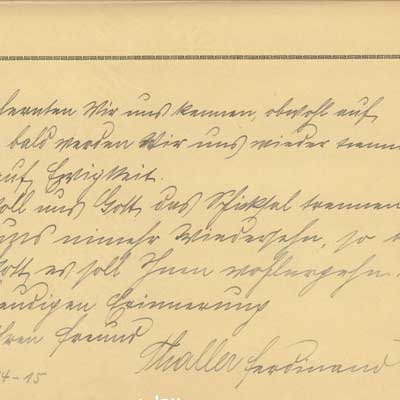 lernten Wir uns kennen, obwohl auf
bald werden Wir uns wieder trenn
auf Ewigkeit.
soll uns Gott, das Schicksal trennen
nimehr Wiedersehn, so
Gott es soll Ihnen wollergehn.
freudigen Erinnerung
Ihren Freund
Thaller Ferdinand
4-15